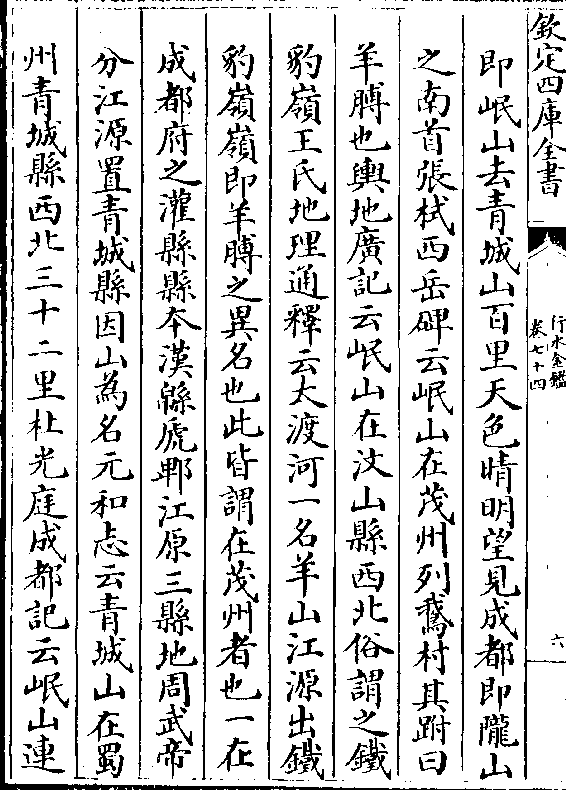 欽定四庫全書
行水金鑑
卷七十四
六
即岷山去青城山百里天色晴明望見成都即隴山
之南首張栻西岳碑云岷山在茂州列鵞村其跗曰
羊膊也輿地廣記云岷山在汶山縣西北俗謂之鐵
豹嶺王氏地理通釋云大渡河一名羊山江源出鐵
豹嶺嶺即羊膊之異名也此皆謂在茂州者也一在
成都府之灌縣縣本漢緜虒郫江原三縣地周武帝
分江源置青城縣因山為名元和志云青城山在蜀
州青城縣西北三十二里杜光庭成都記云岷山連